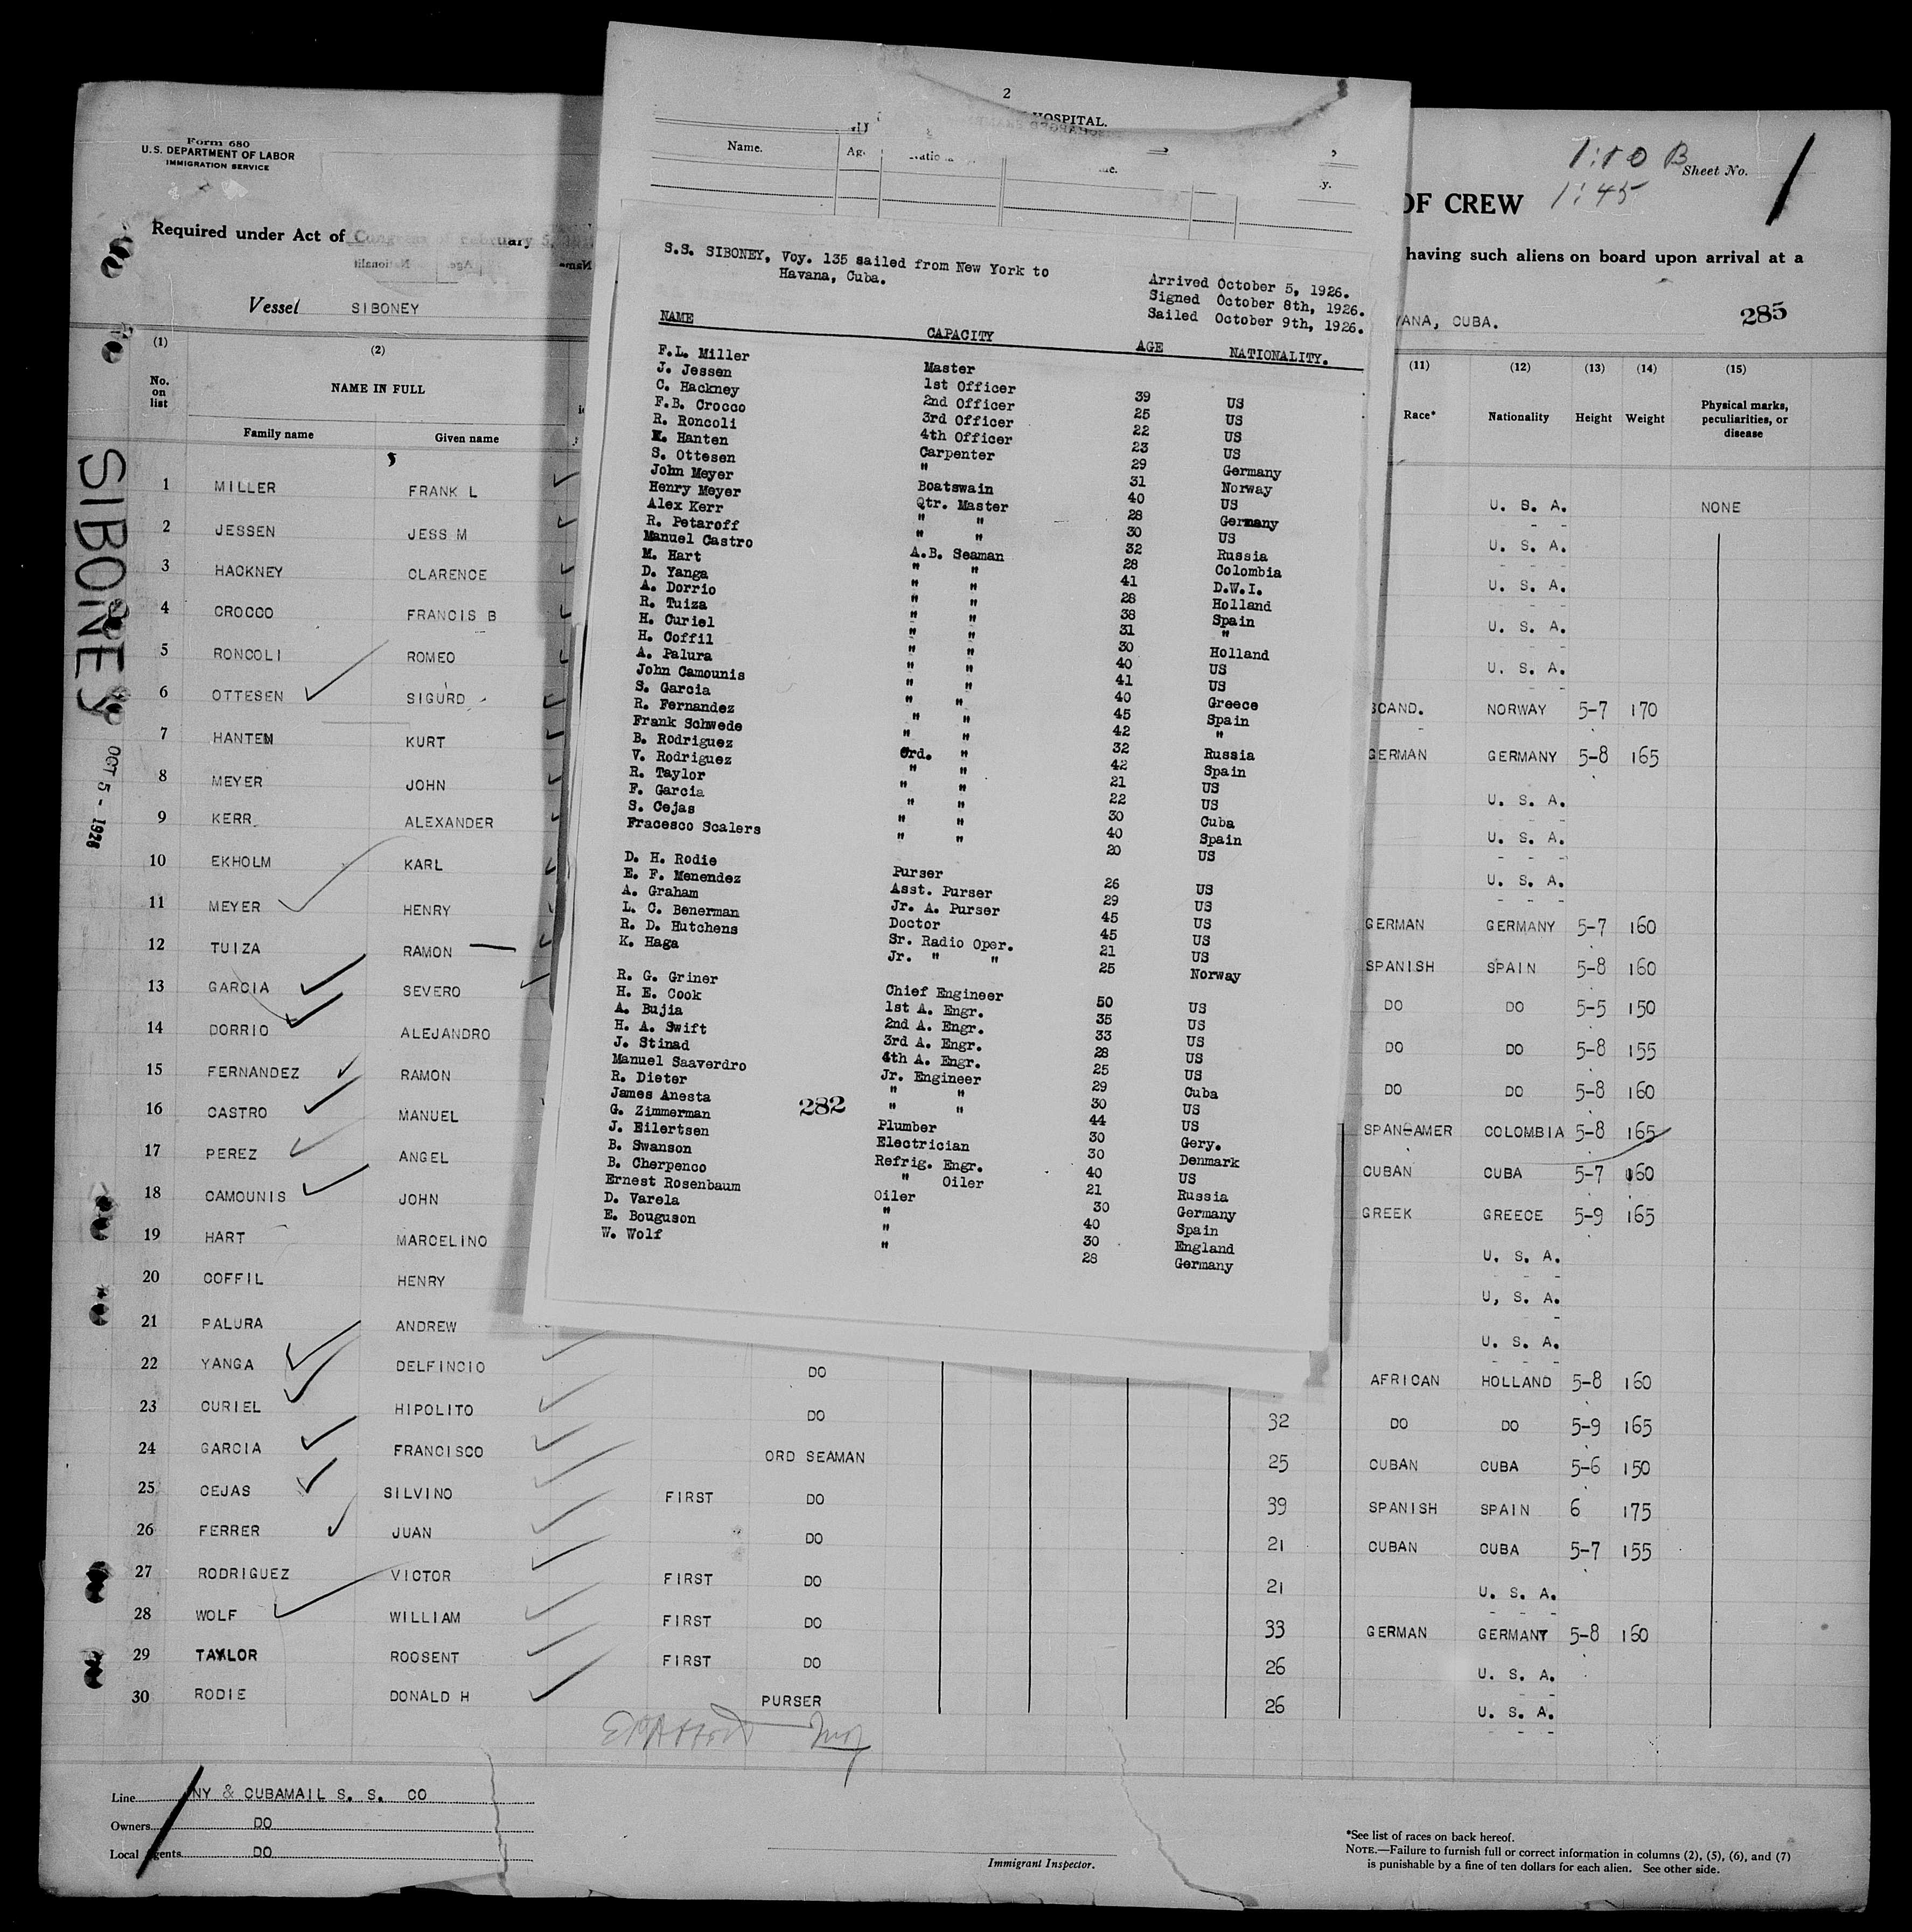 Form 680
U.S. DEPARTMENT OF LABOR
IMMIGRATION SERVICE
1:10 B
Sheet No. 1
1:45
OF CREW
Required under Act of Congress of February 5,
having such aliens on board upon arrival at a
Vessel SIBONEY
VANA, CUBA.
285
SIBONEY
OCT 5 - 1926
2
HOSPITAL.
Name.
S.S. SIBONEY, Voy. 135 sailed from New York to
Havana, Cuba.
Arrived October 5, 1926.
Signed October 8th, 1926.
Sailed October 9th, 1926.
NAME CAPACITY AGE NATIONALITY.
F.L. Miller Master
J. Jessen 1st Officer 39 US
C. Hackney 2nd Officer 25 US
F.B. Crocco 3rd Officer 22 US
R. Roncoli 4th Officer 23 US
K. Hanten Carpenter 29 Germany
S. Ottesen " 31 Norway
John Meyer Boatswain 40 US
Henry Meyer Qtr. Master 28 Germany
Alex Kerr " " 30 US
R. Petaroff " " 32 Russia
Manuel Castro A.B. Seaman 28 Colombia
M. Hart " " 41 D.W.I.
D. Yanga " " 28 Holland
A. Dorrio " " 38 Spain
R. Tuiza " " 31 "
H. Curiel " " 30 Holland
H. Coffil " " 40 US
A. Palura " " 41 US
John Camounis " " 40 Greece
S. Garcia " " 45 Spain
R. Fernandez " " 42 "
Frank Schwede " " 32 Russia
B. Rodriguez Ord. " 42 Spain
V. Rodriguez " " 21 US
R. Taylor " " 22 US
F. Garcia " " 30 Cuba
S. Cejas " " 40 Spain
Fracesco Scalers " " 20 US
D. H. Rodie Purser 26 US
E. F. Menendez Asst. Purser 29 US
A. Graham Jr. A. Purser 45 US
L. C. Benerman Doctor 45 US
R. D. Hutchens Sr. Radio Oper. 21 US
K. Haga Jr. " " 25 Norway
R. G. Griner Chief Engineer 50 US
H. E. Cook 1st A. Engr. 35 US
A. Bujia 2nd A. Engr. 33 US
H. A. Swift 3rd A. Engr. 28 US
J. Stinad 4th A. Engr. 25 US
Manuel Saaverdro Jr. Engineer 29 Cuba
R. Dieter " " 30 US
James Anesta " " 44 US
G. Zimmerman Plumber 30 Gery.
282
J. Eilertsen Electrician 30 Denmark
B. Swanson Refrig. Engr. 40 US
B. Cherpenco " Oiler 21 Russia
Ernest Rosenbaum Oiler 30 Germany
D. Varela " 40 Spain
E. Bouguson " 30 England
W. Wolf " 28 Germany
(1) (2) (11) (12) (13) (14) (15)
No. on list NAME IN FULL Race* Nationality Height Weight Physical marks, peculiarities, or disease
Family name Given name
1 MILLER FRANK L U. S. A. NONE
2 JESSEN JESS M U. S. A.
3 HACKNEY CLARENCE U. S. A.
4 CROCCO FRANCIS B U. S. A.
5 RONCOLI ROMEO U. S. A.
6 OTTESEN SIGURD SCAND. NORWAY 5-7 170
7 HANTEN KURT GERMAN GERMANY 5-8 165
8 MEYER JOHN U. S. A.
9 KERR ALEXANDER U. S. A.
10 EKHOLM KARL U. S. A.
11 MEYER HENRY GERMAN GERMANY 5-7 160
12 TUIZA RAMON SPANISH SPAIN 5-8 160
13 GARCIA SEVERO DO DO 5-5 150
14 DORRIO ALEJANDRO DO DO 5-8 155
15 FERNANDEZ RAMON DO DO 5-8 160
16 CASTRO MANUEL SPAN-AMER COLOMBIA 5-8 165
17 PEREZ ANGEL CUBAN CUBA 5-7 160
18 CAMOUNIS JOHN GREEK GREECE 5-9 165
19 HART MARCELINO U. S. A.
20 COFFIL HENRY U, S. A.
21 PALURA ANDREW U. S. A.
22 YANGA DELFINCIO DO AFRICAN HOLLAND 5-8 160
23 CURIEL HIPOLITO DO 32 DO DO 5-9 165
24 GARCIA FRANCISCO ORD SEAMAN 25 CUBAN CUBA 5-6 150
25 CEJAS SILVINO FIRST DO 39 SPANISH SPAIN 6 175
26 FERRER JUAN DO 21 CUBAN CUBA 5-7 155
27 RODRIGUEZ VICTOR FIRST DO 21 U. S. A.
28 WOLF WILLIAM FIRST DO 33 GERMAN GERMANY 5-8 160
29 TAYLOR ROOSENT FIRST DO 26 U. S. A.
30 RODIE DONALD H PURSER 26 U. S. A.
Line NY & CUBAMAIL S. S. CO
Owners DO
Local Agents DO
Immigrant Inspector.
*See list of races on back hereof.
NOTE.—Failure to furnish full or correct information in columns (2), (5), (6), and (7)
is punishable by a fine of ten dollars for each alien. See other side.